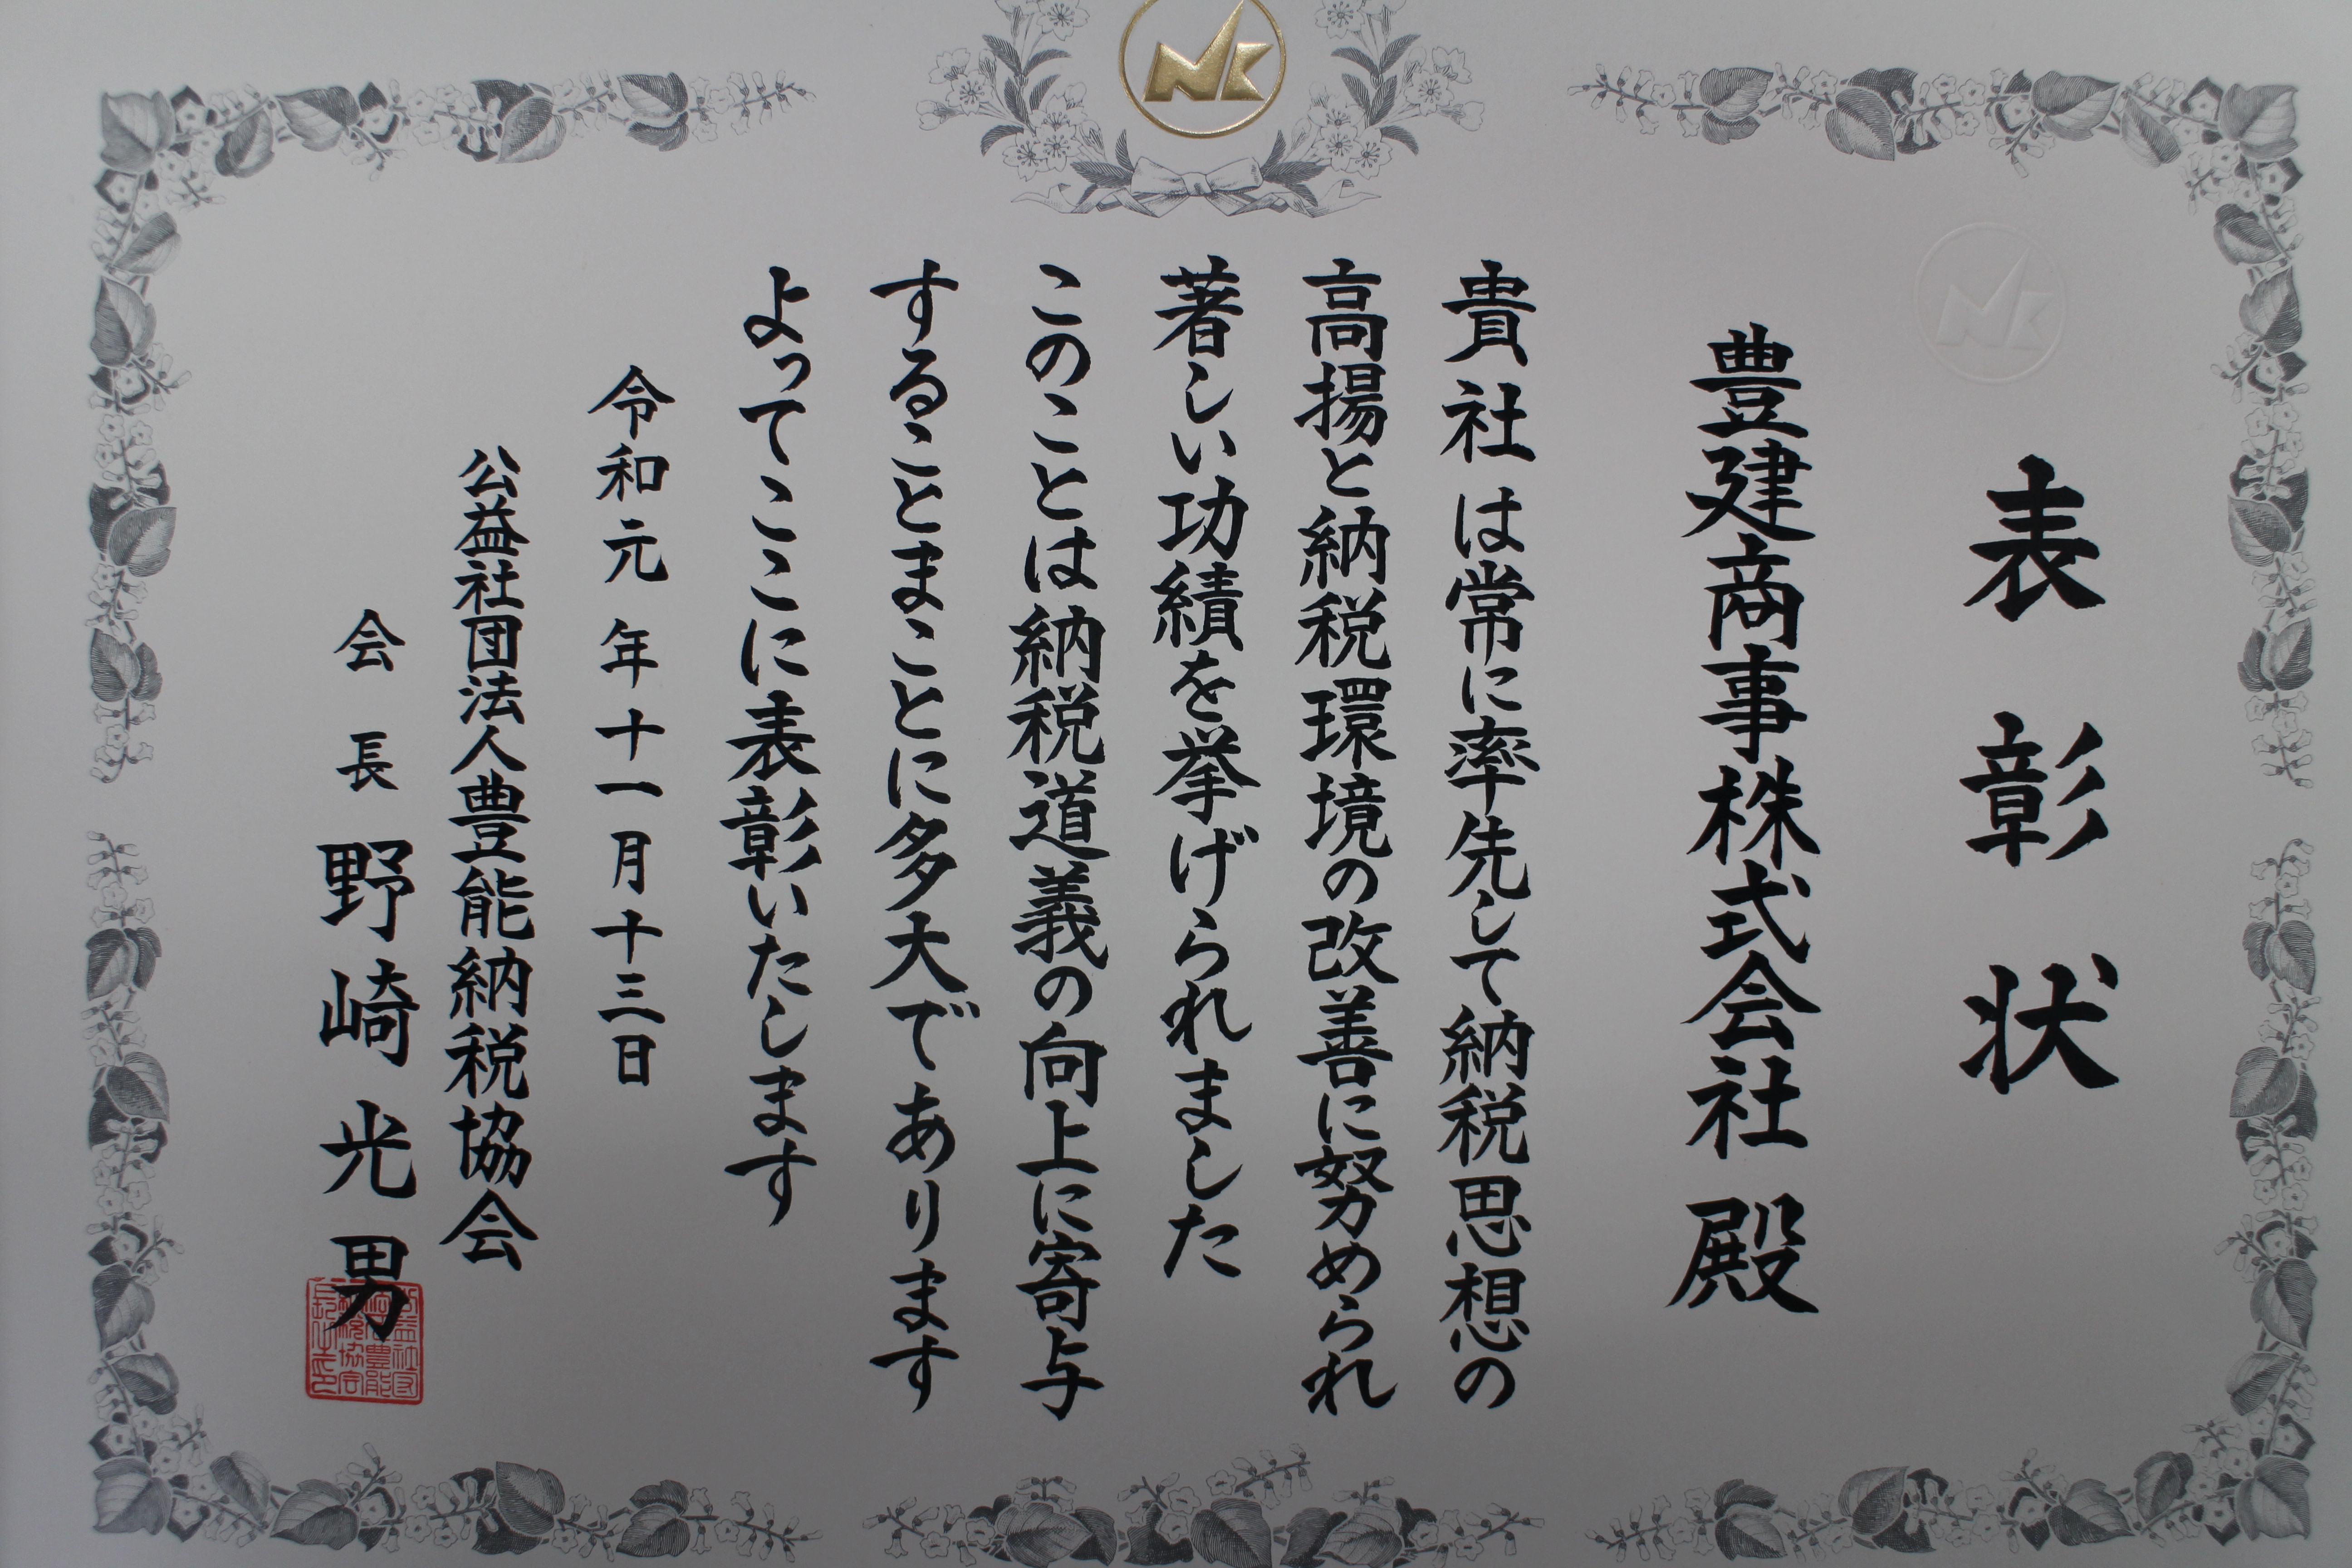 表彰状
豊建商事株式会社 殿
貴社は常に率先して納税思想の
高揚と納税環境の改善に努められ
著しい功績を挙げられました
このことは納税道義の向上に寄与
することまことに多大であります
よってここに表彰いたします
令和元年十一月十三日
公益社団法人豊能納税協会
会長 野崎光男